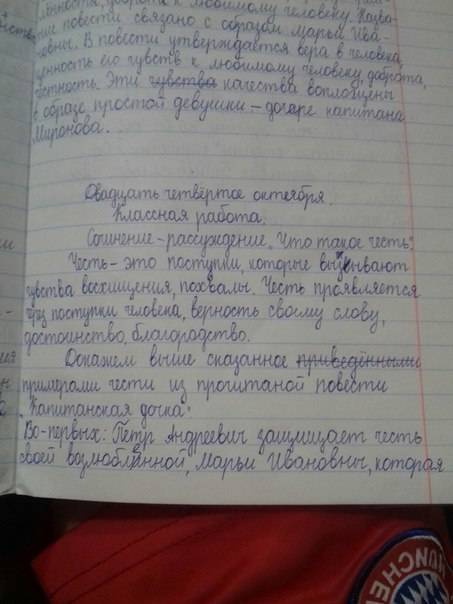 любимому человеку. Назва-
ние повести связано с образом Марьи Ива-
новны. В повести утверждается вера в человека,
ценность его чувств к любимому человеку, доброта,
честность. Эти чувства качества воплощены
в образе простой девушки – дочере капитана
Миронова.
Двадцать четвёртое октеября.
Классная работа.
Сочинение – рассуждение „Что такое честь“.
Честь – это поступки, которые вызывают
чувства восхищения, похвалы. Честь проявляется
через поступки человека, верность своему слову,
достоинство, благородство.
Докажем выше сказанное приведёнными
примерами чести из прочитаной повести
„Капитанская дочка“.
Во-первых: Пётр Андреевич защищает честь
своей возлюбленной, Марьи Ивановны, которая
MÜNCHEN